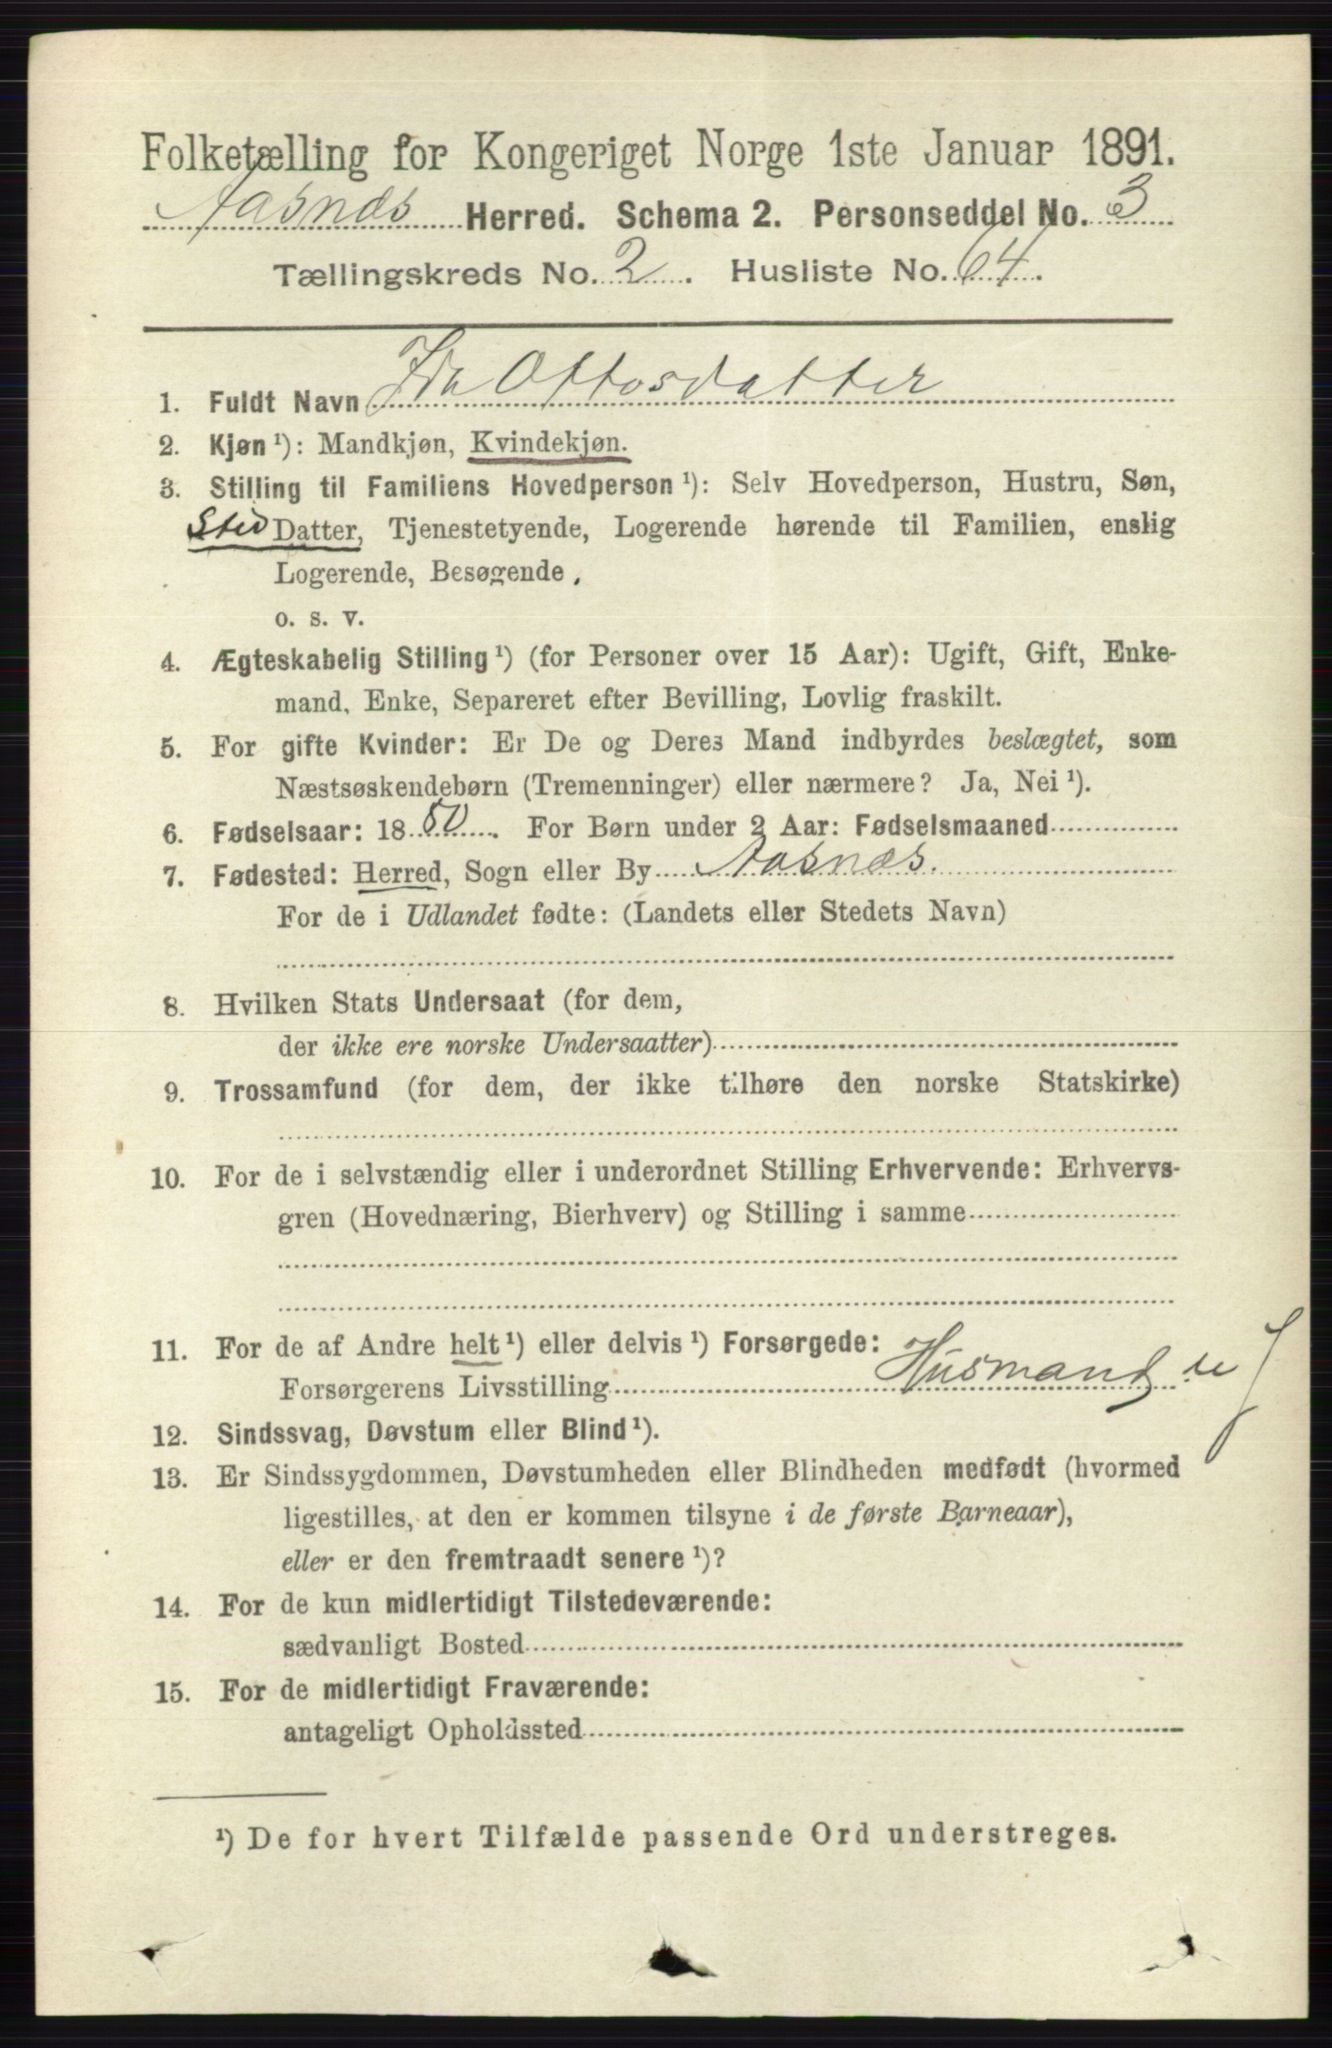 Folketælling for Kongeriget Norge 1ste Januar 1891.
Aasnæs Herred. Schema 2. Personseddel No. 3
Tællingskreds No. 2. Husliste No. 64.
1. Fuldt Navn Ida Ottosdatter
2. Kjøn ¹): Mandkjøn, Kvindekjøn.
3. Stilling til Familiens Hovedperson ¹): Selv Hovedperson, Hustru, Søn,
Sted Datter, Tjenestetyende, Logerende hørende til Familien, enslig
Logerende, Besøgende.
o. s. v.
4. Ægteskabelig Stilling ¹) (for Personer over 15 Aar): Ugift, Gift, Enke-
mand, Enke, Separeret efter Bevilling, Lovlig fraskilt.
5. For gifte Kvinder: Er De og Deres Mand indbyrdes beslægtet, som
Næstsøskendebørn (Tremenninger) eller nærmere? Ja, Nei ¹).
6. Fødselsaar: 1880. For Børn under 2 Aar: Fødselsmaaned
7. Fødested: Herred, Sogn eller By Aasnæs.
For de i Udlandet fødte: (Landets eller Stedets Navn)
8. Hvilken Stats Undersaat (for dem,
der ikke ere norske Undersaatter)
9. Trossamfund (for dem, der ikke tilhøre den norske Statskirke)
10. For de i selvstændig eller i underordnet Stilling Erhvervende: Erhvervs-
gren (Hovednæring, Bierhverv) og Stilling i samme
11. For de af Andre helt ¹) eller delvis ¹) Forsørgede:
Forsørgerens Livsstilling Husmand
12. Sindssvag, Døvstum eller Blind ¹).
13. Er Sindssygdommen, Døvstumheden eller Blindheden medfødt (hvormed
ligestilles, at den er kommen tilsyne i de første Barneaar),
eller er den fremtraadt senere ¹)?
14. For de kun midlertidigt Tilstedeværende:
sædvanligt Bosted
15. For de midlertidigt Fraværende:
antageligt Opholdssted
¹) De for hvert Tilfælde passende Ord understreges.